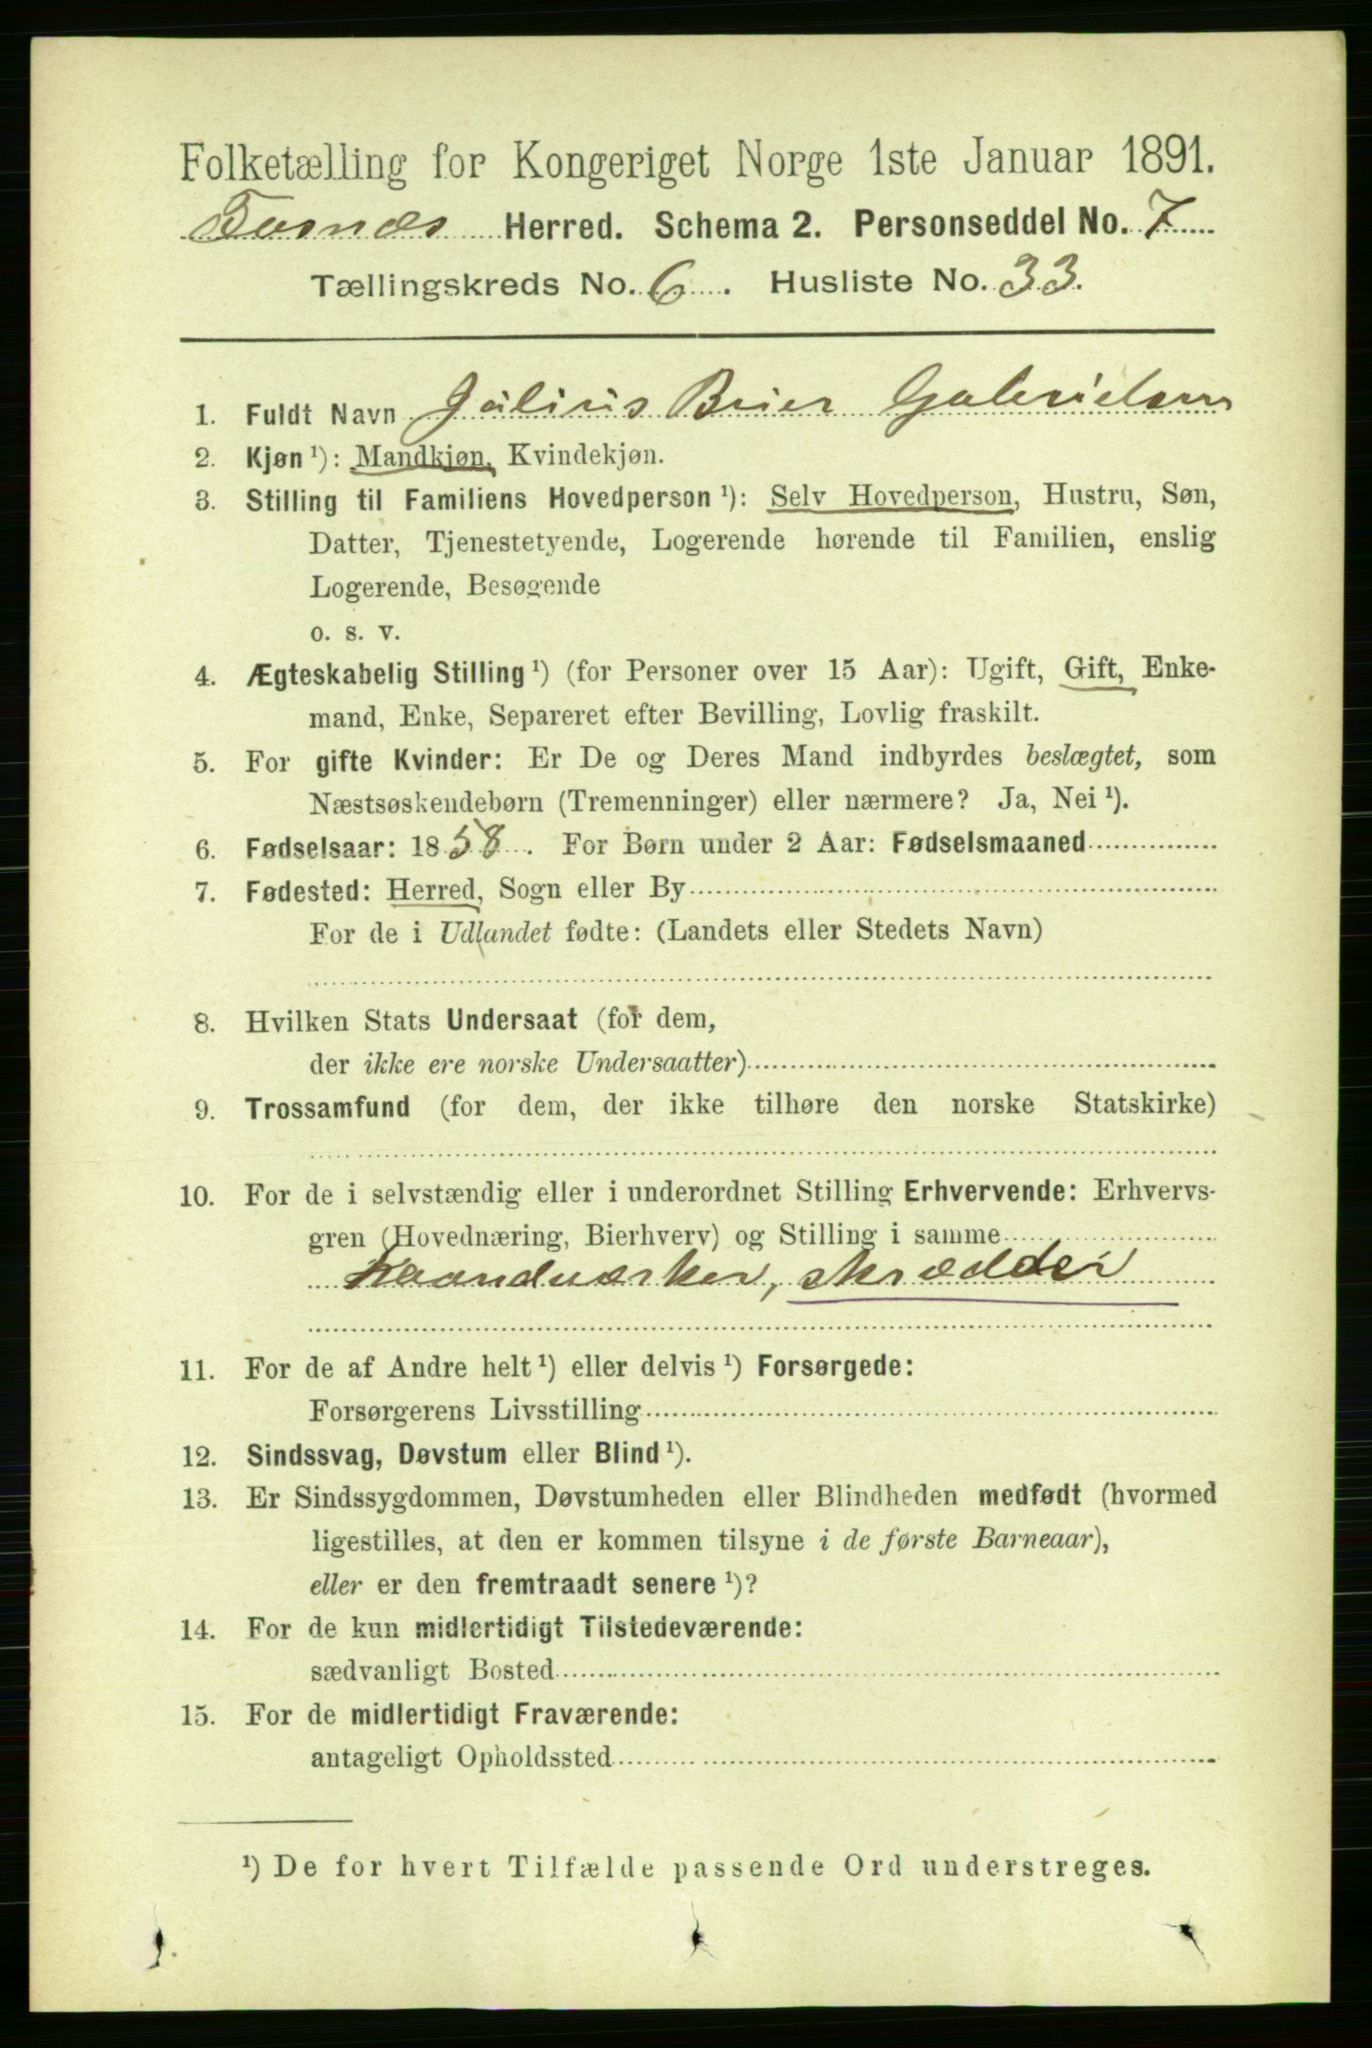 Folketælling for Kongeriget Norge 1ste Januar 1891.
Fosnæs Herred. Schema 2. Personseddel No. 7
Tællingskreds No. 6. Husliste No. 33.
1. Fuldt Navn Julius Brier Gabrielsen
2. Kjøn ¹): Mandkjøn, Kvindekjøn.
3. Stilling til Familiens Hovedperson ¹): Selv Hovedperson, Hustru, Søn,
Datter, Tjenestetyende, Logerende hørende til Familien, enslig
Logerende, Besøgende
o. s. v.
4. Ægteskabelig Stilling ¹) (for Personer over 15 Aar): Ugift, Gift, Enke-
mand, Enke, Separeret efter Bevilling, Lovlig fraskilt.
5. For gifte Kvinder: Er De og Deres Mand indbyrdes beslægtet, som
Næstsøskendebørn (Tremenninger) eller nærmere? Ja, Nei ¹).
6. Fødselsaar: 1858. For Børn under 2 Aar: Fødselsmaaned
7. Fødested: Herred, Sogn eller By
For de i Udlandet fødte: (Landets eller Stedets Navn)
8. Hvilken Stats Undersaat (for dem,
der ikke ere norske Undersaatter)
9. Trossamfund (for dem, der ikke tilhøre den norske Statskirke)
10. For de i selvstændig eller i underordnet Stilling Erhvervende: Erhvervs-
gren (Hovednæring, Bierhverv) og Stilling i samme
Haandværker, skrædder
11. For de af Andre helt ¹) eller delvis ¹) Forsørgede:
Forsørgerens Livsstilling
12. Sindssvag, Døvstum eller Blind ¹).
13. Er Sindssygdommen, Døvstumheden eller Blindheden medfødt (hvormed
ligestilles, at den er kommen tilsyne i de første Barneaar),
eller er den fremtraadt senere ¹)?
14. For de kun midlertidigt Tilstedeværende:
sædvanligt Bosted
15. For de midlertidigt Fraværende:
antageligt Opholdssted
¹) De for hvert Tilfælde passende Ord understreges.